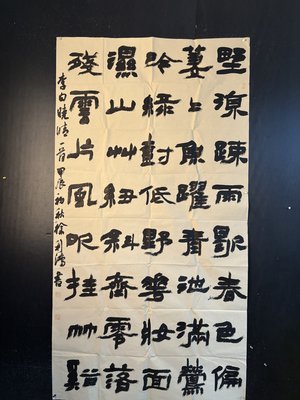 野涼疎雨歇春色偏
萋〻魚躍青池滿鶯
吟綠樹低野花妝面
濕山艸紐斜齊零落
殘雲片風吹挂竹谿
李白曉晴一首甲辰初秋徐書